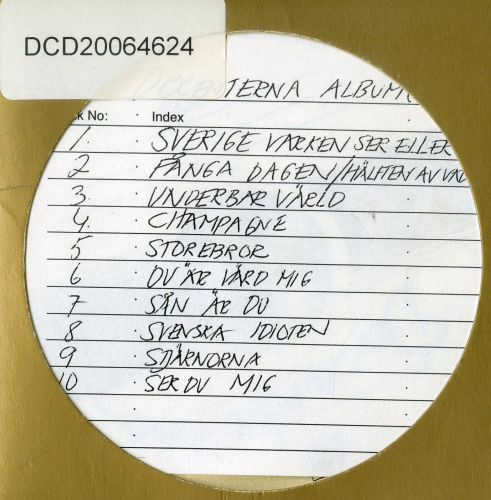 DCD20064624
DOCENTERNA ALBUM
k No: Index
1. SVERIGE VARKEN SER ELLER
2 FÅNGA DAGEN/HÄLFTEN AV
3. UNDERBAR VÄRLD
4. CHAMPAGNE
5 STOREBROR
6 DU ÄR VÄRD MIG
7 SÅN ÄR DU
8 SVENSKA IDIOTEN
9 STJÄRNORNA
10 SER DU MIG